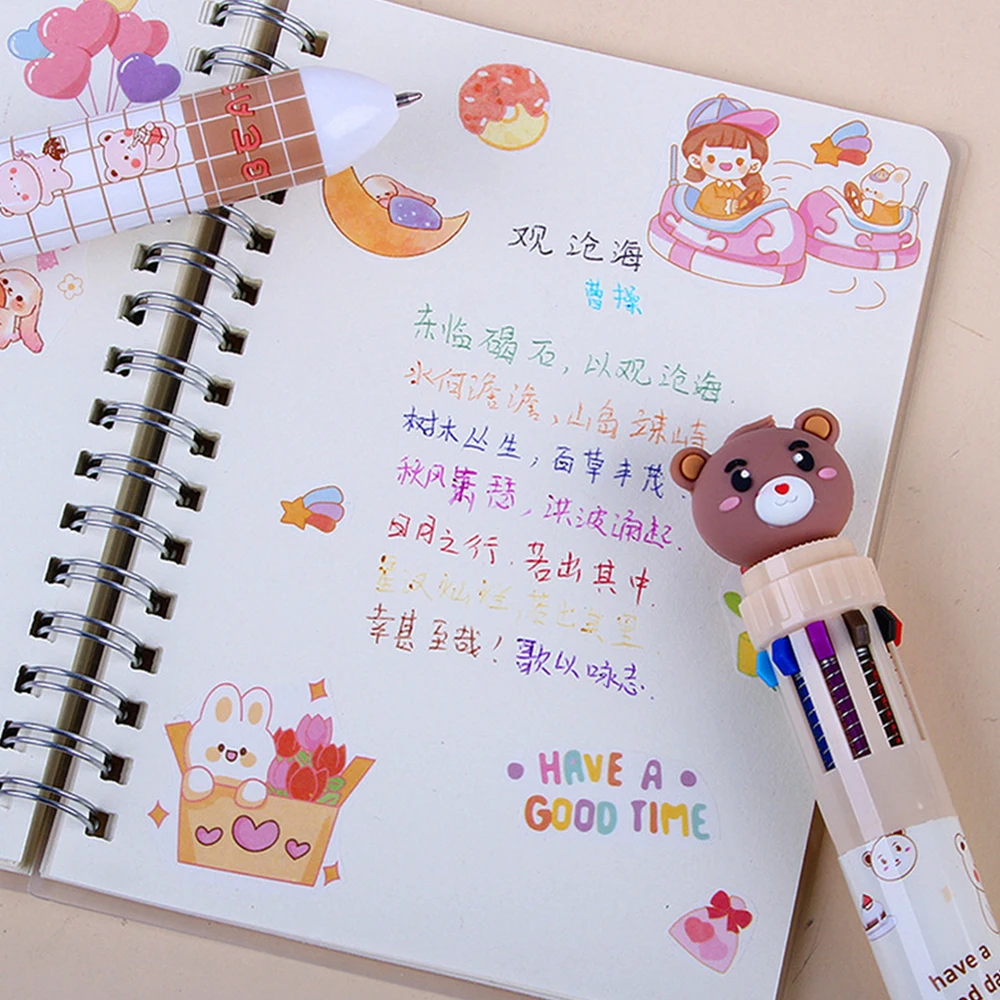 BEAR
观沧海
曹操
东临碣石，以观沧海.
水何澹澹，山岛竦峙
树木丛生，百草丰茂.
秋风萧瑟，洪波涌起.
日月之行.若出其中.
星汉灿烂，若出其里
幸甚至哉！歌以咏志.
• HAVE A •
GOOD TIME
have a